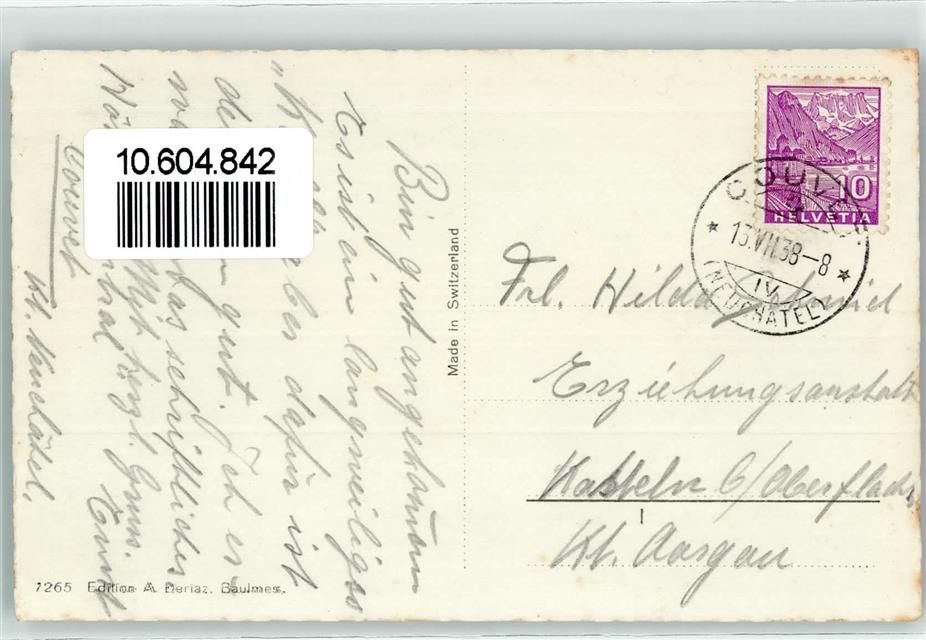 10.604.842
Bin gut angekommen
Es ist ein langweiliges
es dafür ist
gut. Ich es
schriftliches
Mit herzl. Gruss.
Ernst
Couvet Kt. Neuchâtel.
Made in Switzerland
7265 Edition A. Deriaz, Baulmes.
10
HELVETIA
COUVET
13.VII.38–8
IV
(NEUCHÂTEL)
Frl. Hilda Schmid
Erziehungsanstalt
Kasteln b/Oberflachs
Kt. Aargau